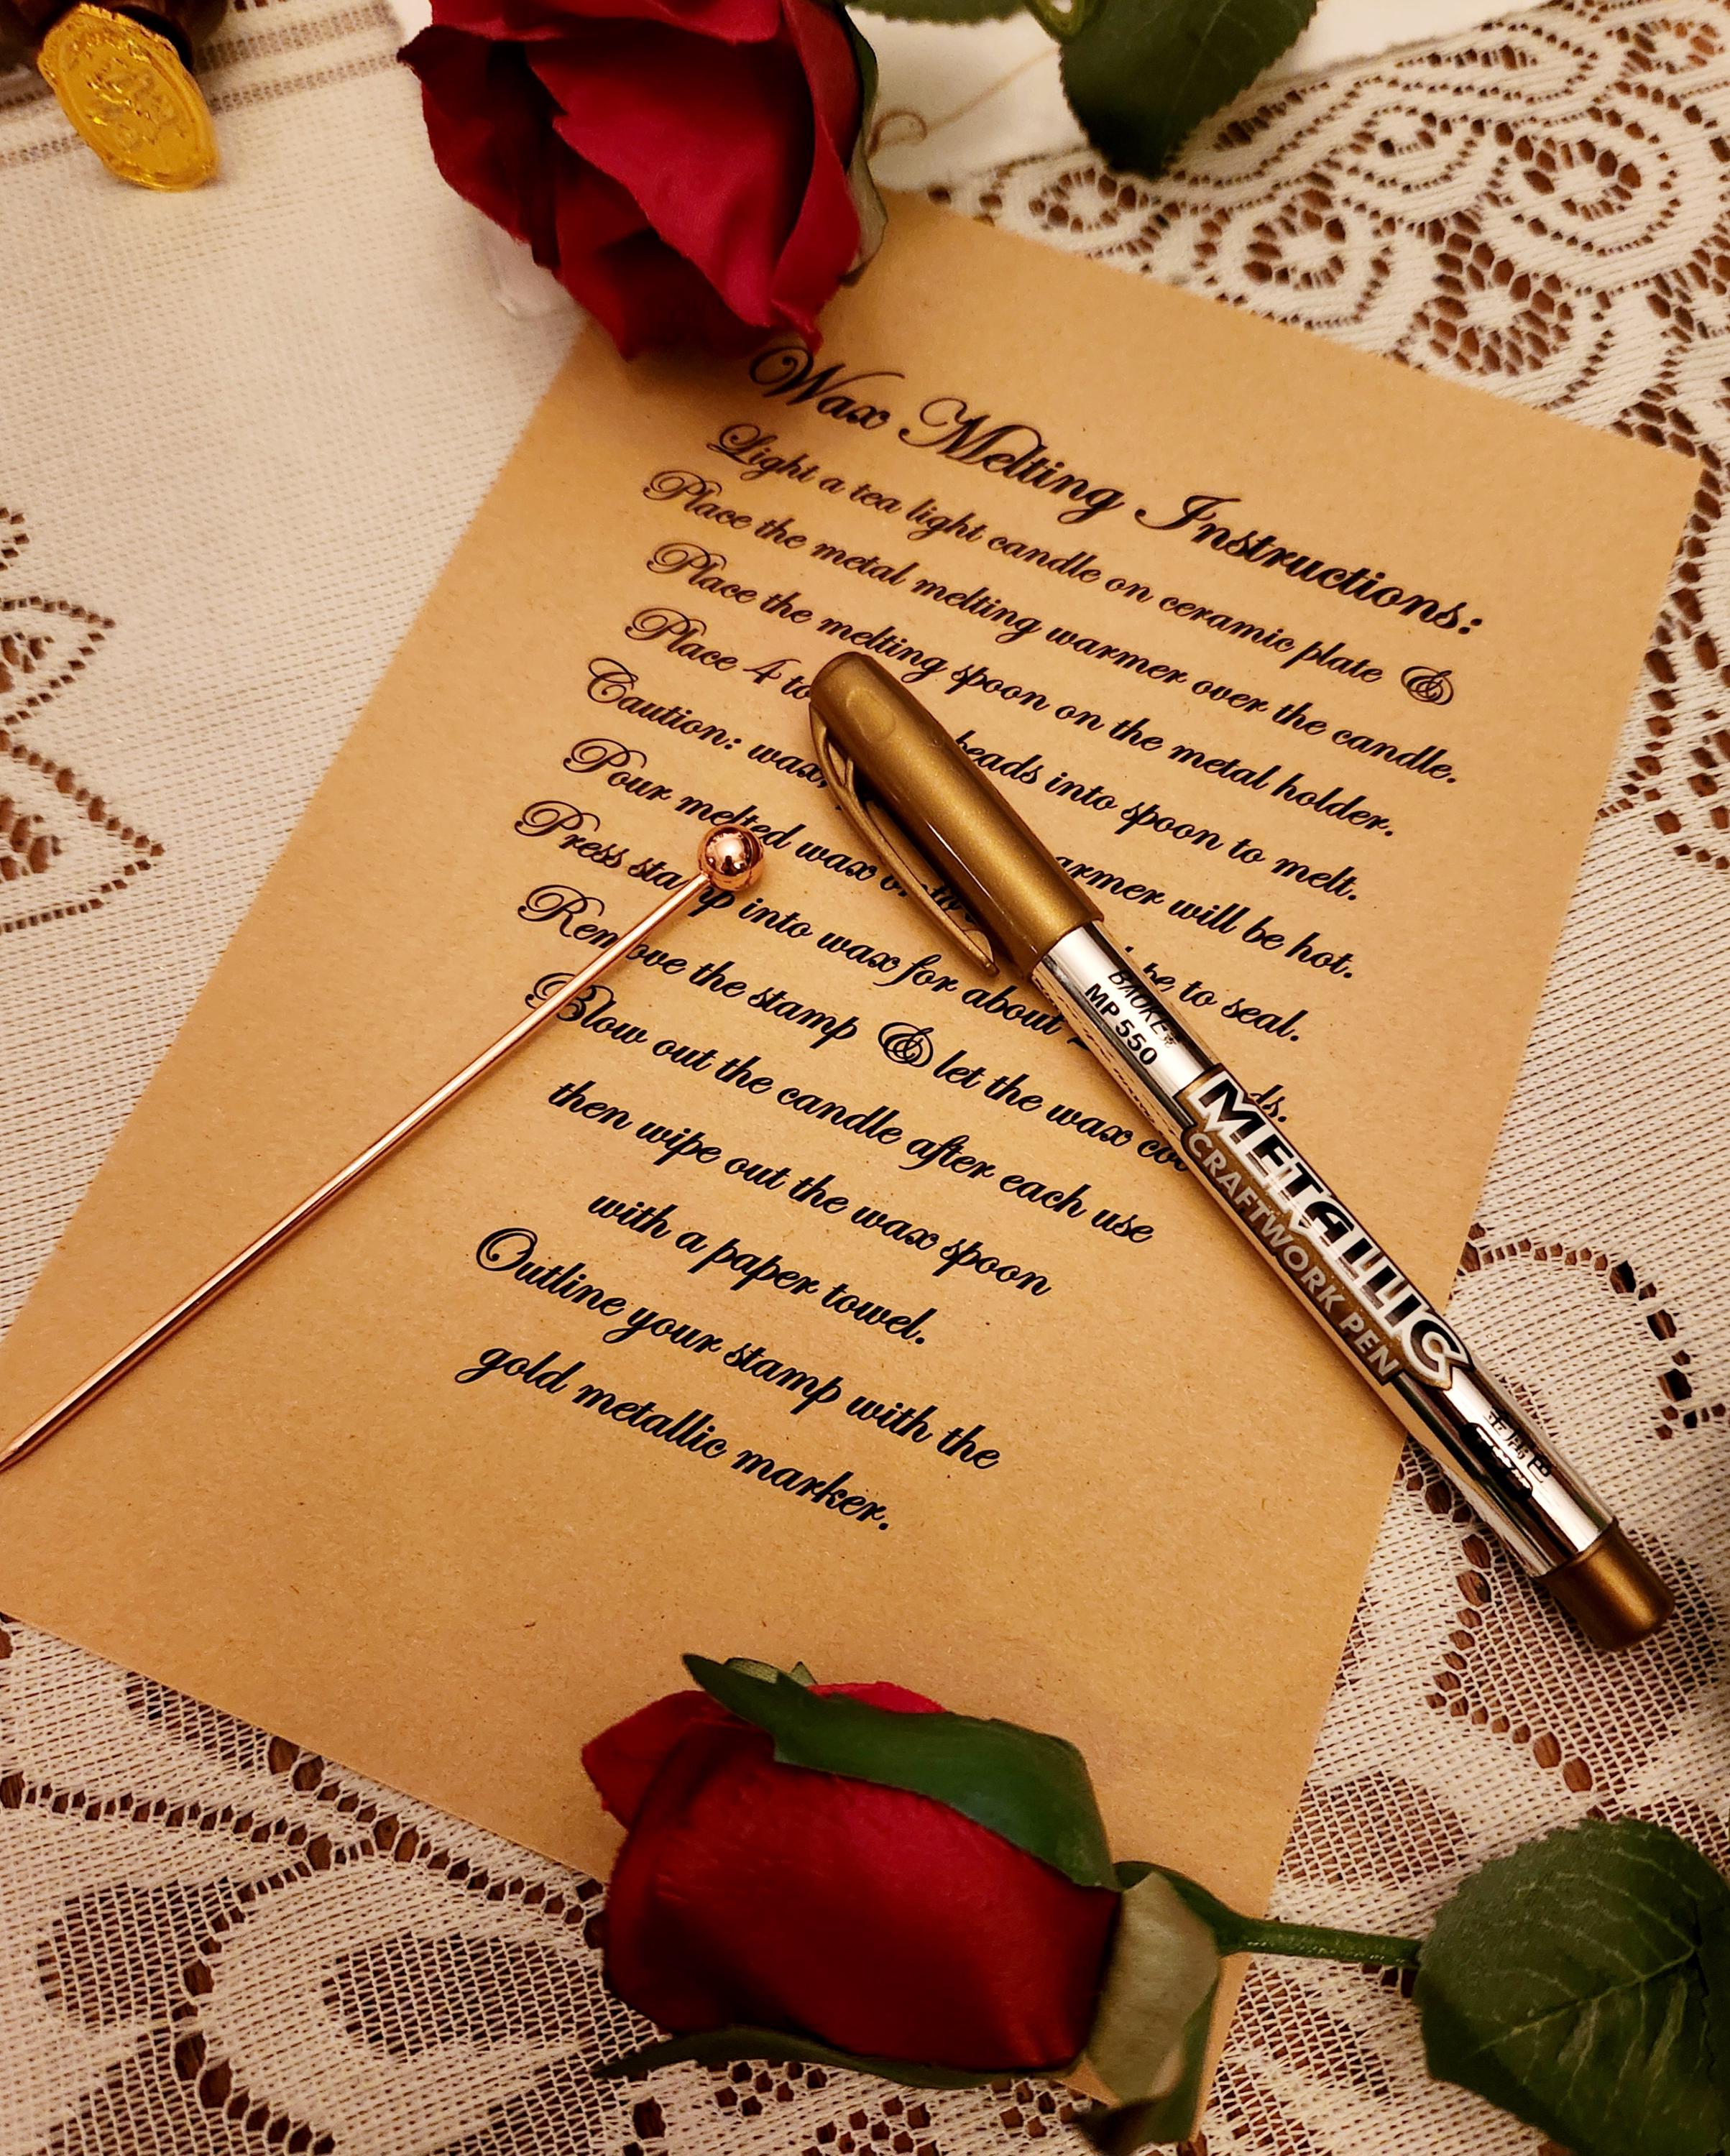 Wax Melting Instructions:
Light a tea light candle on ceramic plate &
Place the metal melting warmer over the candle.
Place the melting spoon on the metal holder.
Place 4 to beads into spoon to melt.
Caution: wax, warmer will be hot.
Pour melted wax be to seal.
Press stamp into wax for about
Remove the stamp & let the wax
Blow out the candle after each use
then wipe out the wax spoon
with a paper towel.
Outline your stamp with the
gold metallic marker.
BAOKE
MP550
METALLIC
CRAFTWORK PEN